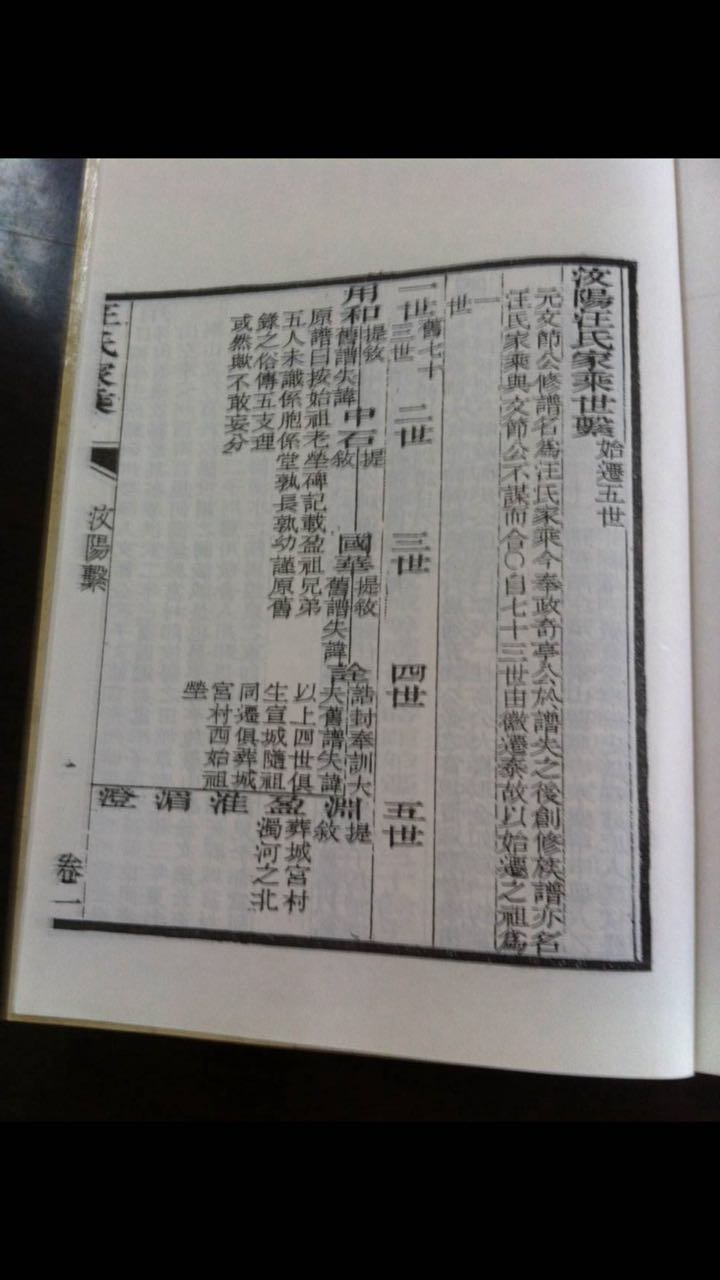 汶陽汪氏家乘世繫 始遷五世
元文節公修譜名爲汪氏家乘今奉政奇亭公於譜失之後創修族譜亦名
汪氏家乘與文節公不謀而合〇自七十三世由徽遷泰故以始遷之祖爲
一世
一世 舊七十三世
二世
三世
四世
五世
用和 提敘
舊譜失諱
原譜曰按始祖老塋碑記載盈祖兄弟
五人未識係胞係堂孰長孰幼謹原舊
錄之俗傳五支理
或然歟不敢妄分
中石 提敘
國華 提敘
舊譜失諱
詮 誥封奉訓大
夫舊譜失諱
以上四世俱
生宣城隨祖
同遷俱葬城
宮村西始祖
塋
淵 提敘
盈 葬城宮村
濁河之北
淮
湄
澄
汪氏家乘
汶陽繫
卷二